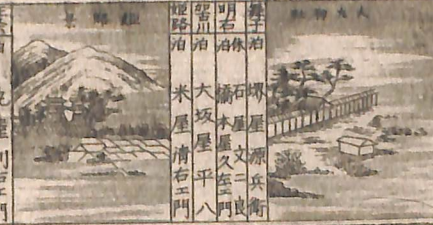 人丸社
舞子 泊 堺屋源兵衛
明石 休 石屋文二良
泊 橋本屋久左エ門
加古川 泊 大坂屋平八
姫路 泊 米屋清右エ門
景